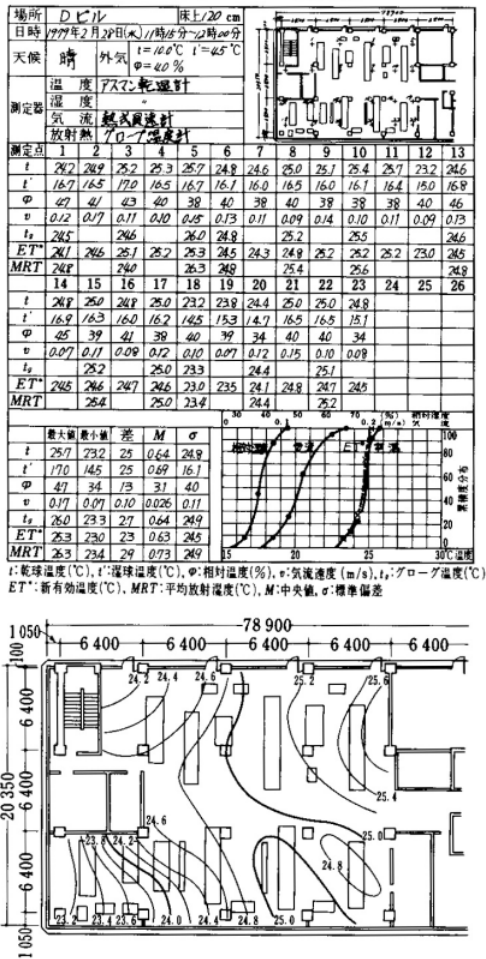 場所 Dビル 床上120cm
日時 1979年2月28日(水) 11時15分~12時00分
天候 晴 外気 t=10.0℃ t'=4.5℃
φ=40%
測定器 温度 アスマン乾湿計
湿度 〃
気流 熱式風速計
放射熱 グローブ温度計
測定点 1 2 3 4 5 6 7 8 9 10 11 12 13
t 24.2 24.9 25.2 25.3 25.7 24.8 24.6 25.0 25.1 25.4 25.7 23.2 24.6
t' 16.7 16.5 17.0 16.5 16.7 16.1 16.0 16.5 16.0 16.1 16.4 15.0 16.8
φ 47 41 43 40 38 40 38 40 38 38 38 40 46
v 0.12 0.17 0.11 0.10 0.15 0.13 0.11 0.09 0.14 0.10 0.11 0.09 0.13
tg 24.5 24.6 26.0 24.8 25.2 25.5 24.6
ET* 24.1 24.6 25.1 25.2 25.3 24.5 24.3 24.8 25.2 25.2 25.2 23.0 24.5
MRT 24.8 24.0 26.3 24.8 25.4 25.6 24.8
14 15 16 17 18 19 20 21 22 23 24 25 26
t 24.8 25.0 24.8 25.0 23.2 23.8 24.4 25.0 25.0 24.8
t' 16.9 16.3 16.0 16.2 14.5 15.3 14.7 16.5 16.5 15.1
φ 45 39 41 38 40 39 34 40 40 34
v 0.07 0.11 0.08 0.12 0.10 0.07 0.12 0.15 0.10 0.08
tg 25.2 25.0 23.3 24.4 25.1
ET* 24.5 24.6 24.7 24.6 23.0 23.5 24.1 24.8 24.7 24.5
MRT 25.4 25.0 23.4 24.4 25.2
最大値 最小値 差 M σ
t 25.7 23.2 2.5 0.64 24.8
t' 17.0 14.5 2.5 0.69 16.1
φ 47 34 13 3.1 40
v 0.17 0.07 0.10 0.026 0.11
tg 26.0 23.3 2.7 0.64 24.9
ET* 25.3 23.0 2.3 0.63 24.5
MRT 26.3 23.4 2.9 0.73 24.9
30 40 50 60 70 (%) 相対湿度
0 0.1 0.2 (m/s) 気流
ET*
100
80
60
40
20
0
累積度分布
15 20 25 30℃温度
t:乾球温度(℃), t':湿球温度(℃), φ:相対温度(%), v:気流速度(m/s), tg:グローグ温度(℃)
ET*:新有効温度(℃), MRT:平均放射湿度(℃), M:中央値, σ:標準偏差
78 900
1 050 6 400 6 400 6 400 6 400
100
24.2 24.4 24.6 25.2 25.6
6 400
25.4
20 350
6 400
24.6
25.0
23.8 24.2
24.8
6 400
23.4 23.6 24.0 24.4 24.8 25.0
1 050